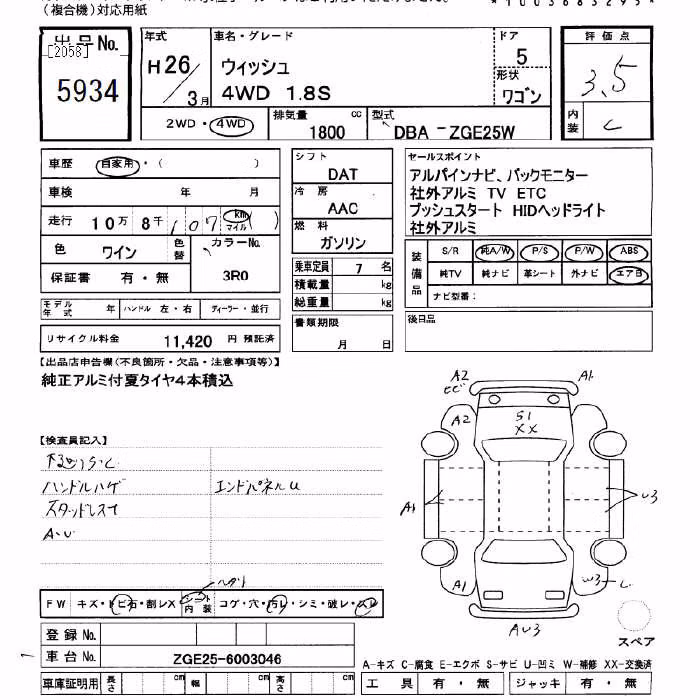 (複合機)対応用紙
*1003683295*
出品No.
[2058]
5934
年式
H26/3月
車名・グレード
ウィッシュ
4WD 1.8S
ドア
5
形状
ワゴン
評価点
3.5
内装
C
2WD・4WD
排気量
1800 cc
型式
DBA-ZGE25W
車歴 自家用・( )
車検 年 月
走行 10万 8千 107 km マイル ( )
色 ワイン 色替
カラーNo.
3R0
保証書 有・無
モデル年式 年 ハンドル 左・右 ディーラー・並行
リサイクル料金 11,420 円 預託済
シフト
DAT
冷房
AAC
燃料
ガソリン
乗車定員 7 名
積載量 kg
総重量 kg
書類期限
月 日
セールスポイント
アルパインナビ、バックモニター
社外アルミ TV ETC
プッシュスタート HIDヘッドライト
社外アルミ
装備品
S/R 純A/W P/S P/W ABS
純TV 純ナビ 革シート 外ナビ エアB
ナビ型番:
後日品
【出品店申告欄(不良箇所・欠品・注意事項等)】
純正アルミ付夏タイヤ4本積込
【検査員記入】
下回りS・C
ハンドルハゲ エンドパネルU
スタッドレス
A・U
FW キズ・トビ石・割レX シート内装 コゲ・穴・汚レ・シミ・破レ・スレ
ヘタリ
登録No.
車台No. ZGE25-6003046
車庫証明用 長さ cm 幅 cm 高さ cm
A2
A1
A2
S1
XX
A1
U3
A1
W3
AU3
スペア
A-キズ C-腐食 E-エクボ S-サビ U-凹ミ W-補修 XX-交換済
工具 有・無 ジャッキ 有・無